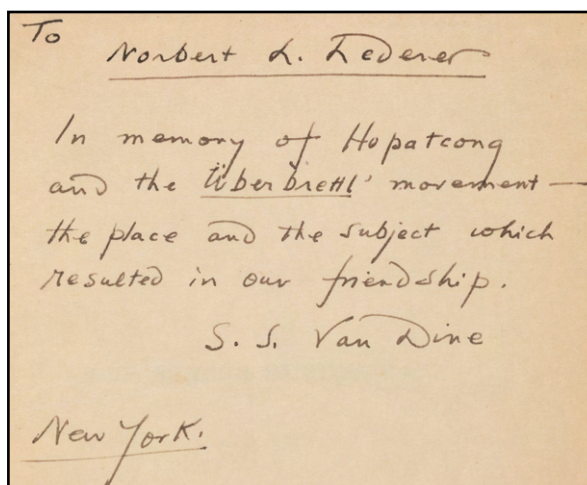 To
Norbert L. Lederer
In memory of Hopatcong
and the Überbrettl' movement —
the place and the subject which
resulted in our friendship.
S. S. Van Dine
New York.